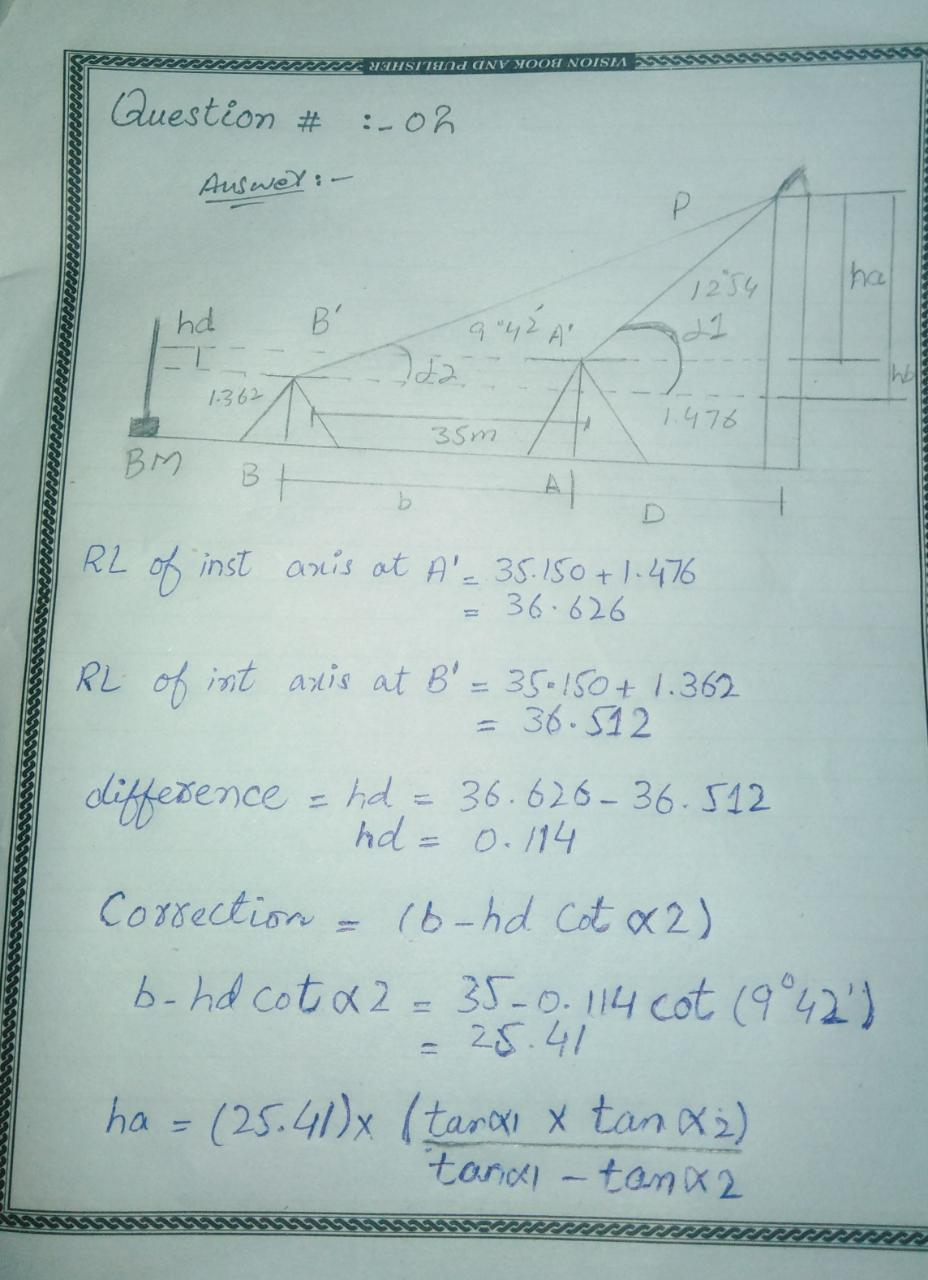 VISION BOOK AND PUBLISHER
Question # :- 02
Answer :-
P
ha
12°54
hd
B'
9°42' A'
α1
α2
hb
1.362
1.476
35m
BM
B
A
b
D
RL of inst axis at A' = 35.150 + 1.476
= 36.626
RL of int axis at B' = 35.150 + 1.362
= 36.512
difference = hd = 36.626 - 36.512
hd = 0.114
Correction = (b - hd Cot α2)
b - hd cot α2 = 35 - 0.114 cot (9°42')
= 25.41
ha = (25.41) x (tanα1 x tan α2)
tanα1 - tanα2